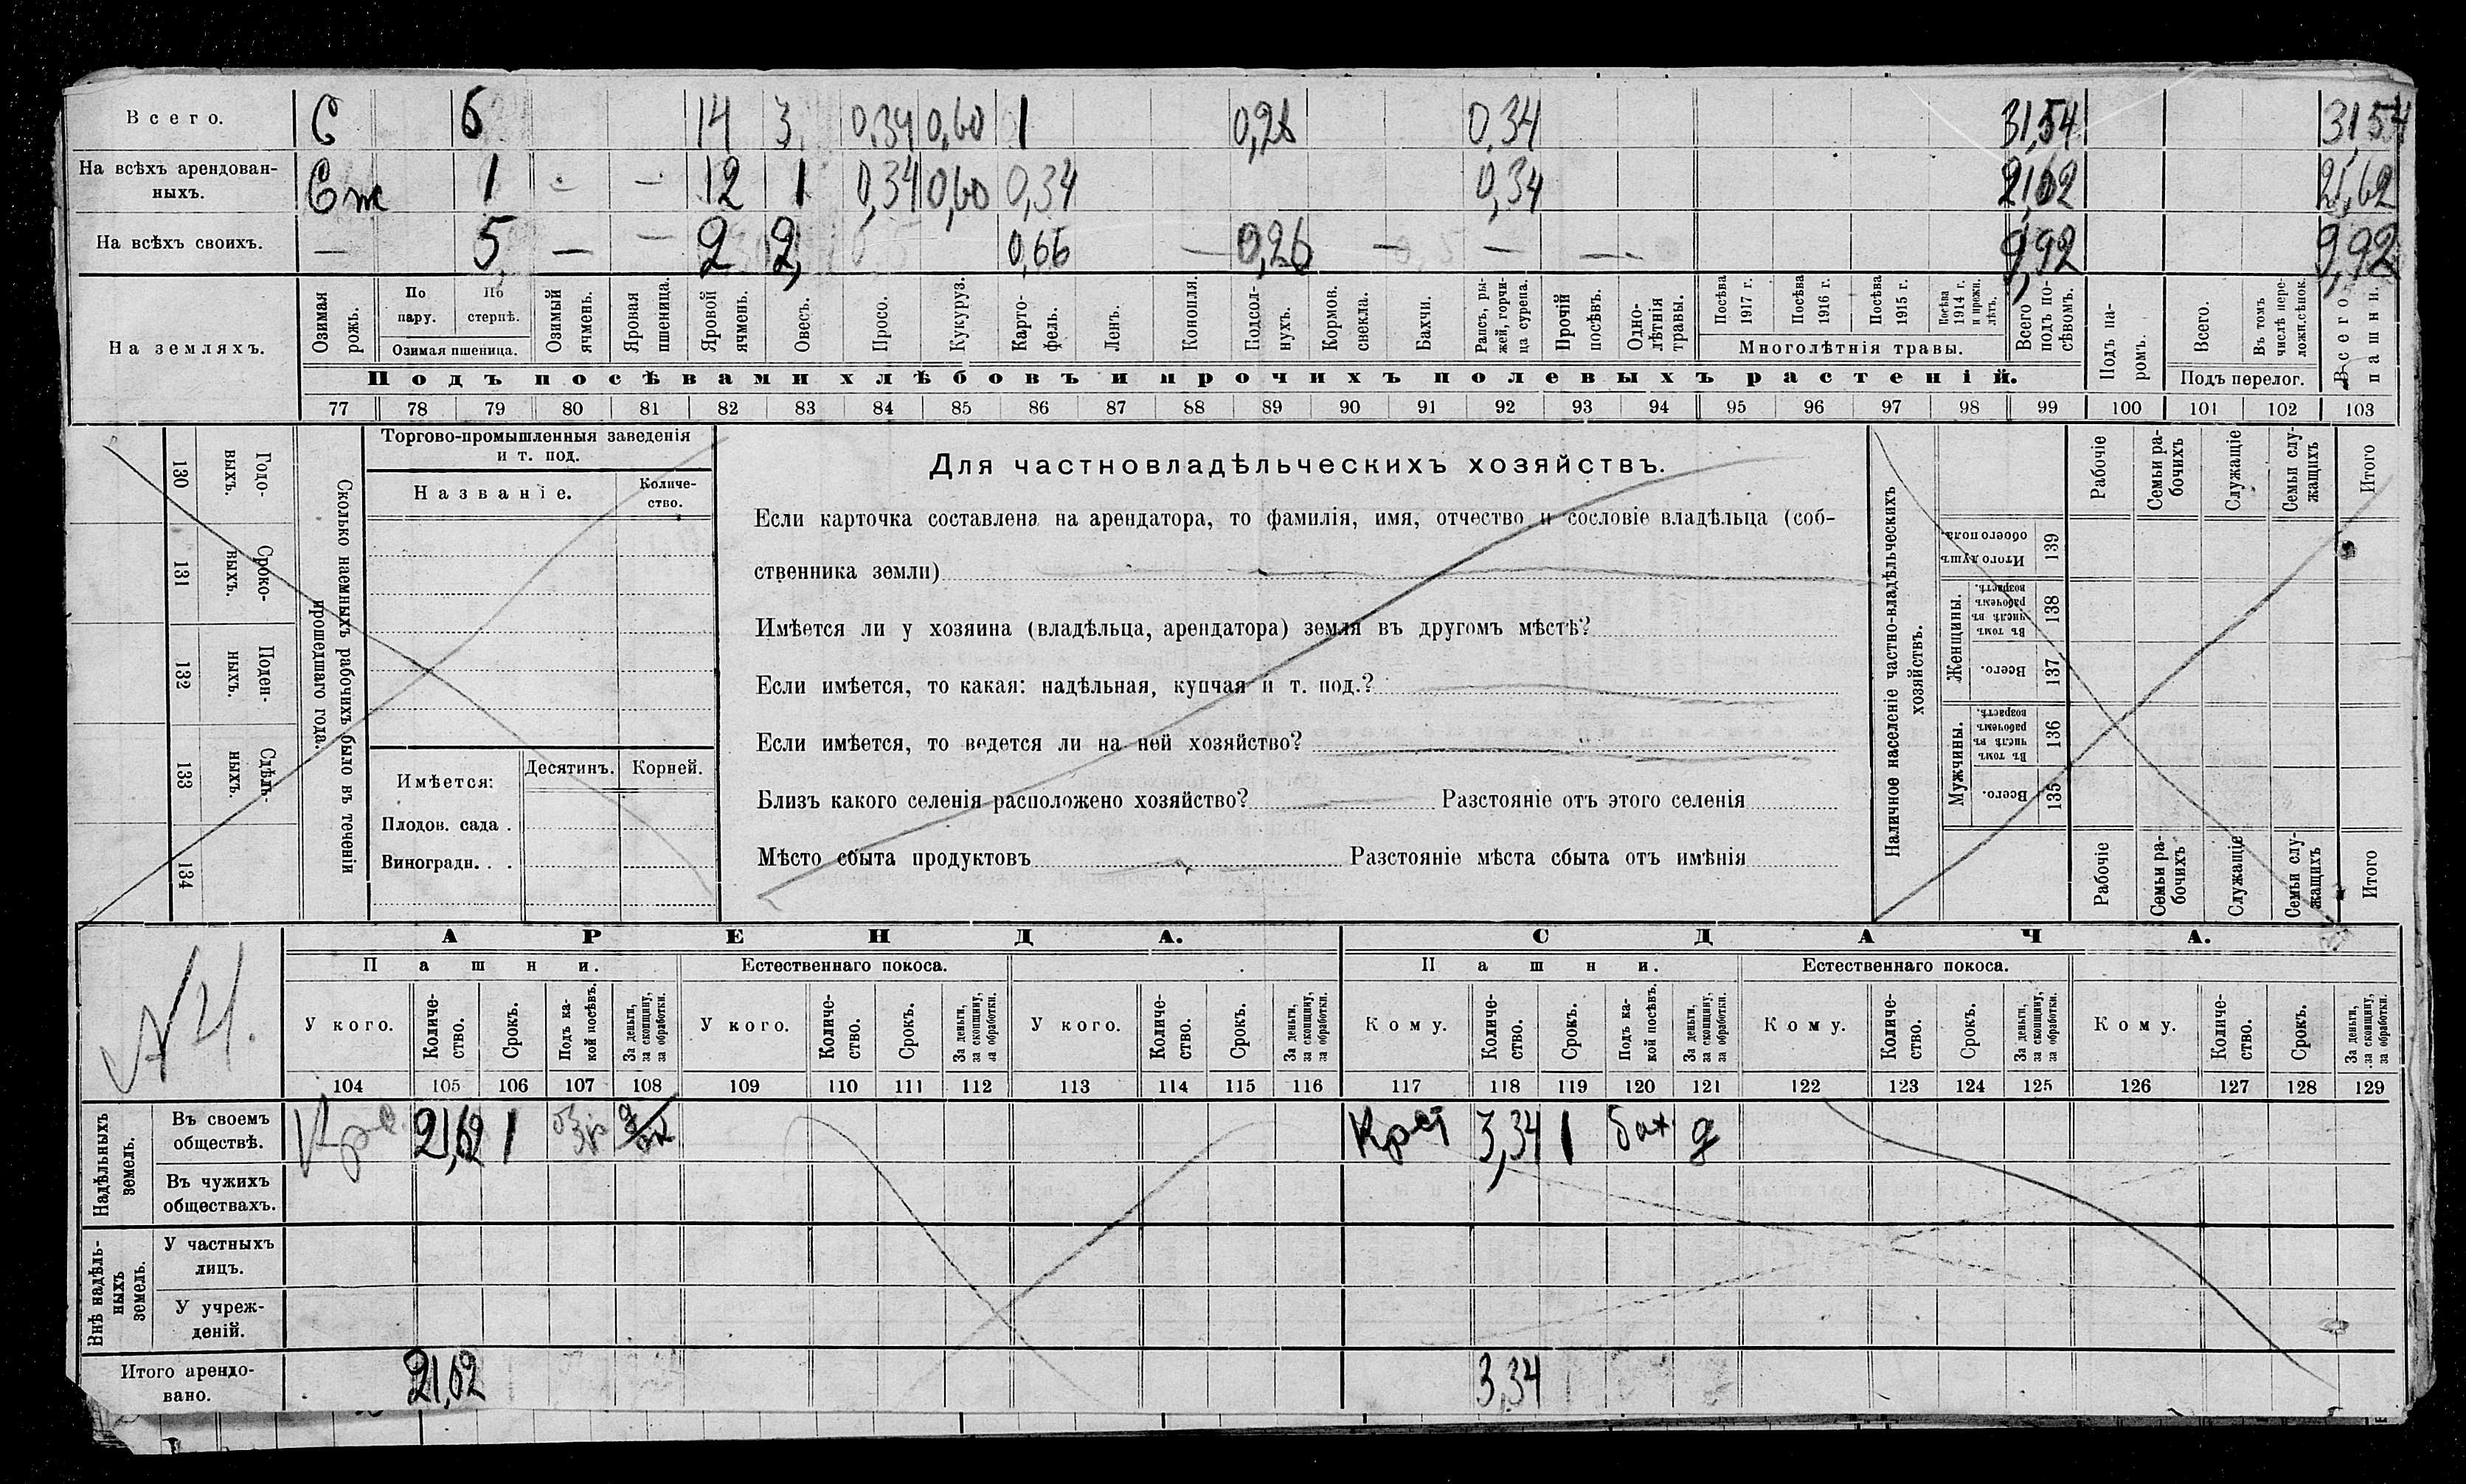 Всего. 6 14 3, 0,34 0,60 1 0,28 0,34 31,54 31,54
На всѣхъ арендован-
ныхъ. 1 - - 12 1 0,34 0,60 0,34 0,34 21,62 21,62
На всѣхъ своихъ. — 5, — — 2 2, 0,66 — 0,26 — — — 9,92 9,92
На земляхъ.
Озимая рожь.
По пару.
По стернѣ.
Озимая пшеница.
Озимый ячмень.
Яровая пшеница.
Яровой ячмень.
Овесъ.
Просо.
Кукуруз.
Карто-
фель.
Ленъ.
Конопля.
Подсол-
нухъ.
Кормов. свекла.
Бахчи.
Рапсъ, ры-
жей, горчи-
ца сурепа.
Прочій посѣвъ.
Одно-
лѣтнія травы.
Посѣва 1917 г.
Посѣва 1916 г.
Посѣва 1915 г.
Посѣва 1914 г. и прежн. лѣтъ.
Многолѣтнія травы.
Всего подъ по-
сѣвомъ.
Подъ па-
ромъ.
Всего.
Въ томъ числѣ пере-
ложн.сѣнок.
Подъ перелог.
Всего пашни.
Подъ посѣвами хлѣбовъ и прочихъ полевыхъ растеній.
77 78 79 80 81 82 83 84 85 86 87 88 89 90 91 92 93 94 95 96 97 98 99 100 101 102 103
130 Годо-
выхъ.
131 Сроко-
выхъ.
132 Поден-
ныхъ.
133 Сдѣль-
ныхъ.
134
Сколько наемныхъ рабочихъ было въ теченіи
прошедшаго года.
Торгово-промышленныя заведенія
и т. под.
Названіе.
Количе-
ство.
Имѣется: Десятинъ. Корней.
Плодов. сада .
Виноградн. . .
Для частновладѣльческихъ хозяйствъ.
Если карточка составлена на арендатора, то фамилія, имя, отчество и сословіе владѣльца (соб-
ственника земли)
Имѣется ли у хозяина (владѣльца, арендатора) земля въ другомъ мѣстѣ?
Если имѣется, то какая: надѣльная, купчая и т. под.?
Если имѣется, то ведется ли на ней хозяйство?
Близъ какого селенія расположено хозяйство? Разстояніе отъ этого селенія
Мѣсто сбыта продуктовъ Разстояніе мѣста сбыта отъ имѣнія
Наличное населеніе частно-владѣльческихъ
хозяйствъ.
Рабочіе
Семьи ра-
бочихъ
Служащіе
Семьи слу-
жащихъ
Итого
Итого душъ обоего пола. 139
Женщины.
Въ томъ числѣ въ рабочемъ возрастѣ. 138
Всего. 137
Мужчины.
Въ томъ числѣ въ рабочемъ возрастѣ. 136
Всего. 135
Рабочіе
Семьи ра-
бочихъ
Служащіе
Семьи слу-
жащихъ
Итого
АРЕНДА. СДАЧА.
Пашни. Естественнаго покоса. Пашни. Естественнаго покоса.
У кого.
Количе-
ство.
Срокъ.
Подъ ка-
кой посѣвъ.
За деньги,
за скопщину,
за обработки.
У кого.
Количе-
ство.
Срокъ.
За деньги,
за скопщину,
за обработки.
У кого.
Количе-
ство.
Срокъ.
За деньги,
за скопщину,
за обработки.
Кому.
Количе-
ство.
Срокъ.
Подъ ка-
кой посѣвъ.
За деньги,
за скопщину,
за обработки.
Кому.
Количе-
ство.
Срокъ.
За деньги,
за скопщину,
за обработки.
Кому.
Количе-
ство.
Срокъ.
За деньги,
за скопщину,
за обработки.
104 105 106 107 108 109 110 111 112 113 114 115 116 117 118 119 120 121 122 123 124 125 126 127 128 129
Надѣльныхъ
земель.
Въ своемъ
обществѣ. 21,62 1 Крест 3,34 1 бах. д
Въ чужихъ
обществахъ.
Внѣ надѣль-
ныхъ
земель.
У частныхъ
лицъ.
У учреж-
деній.
Итого арендо-
вано. 21,62 3,34